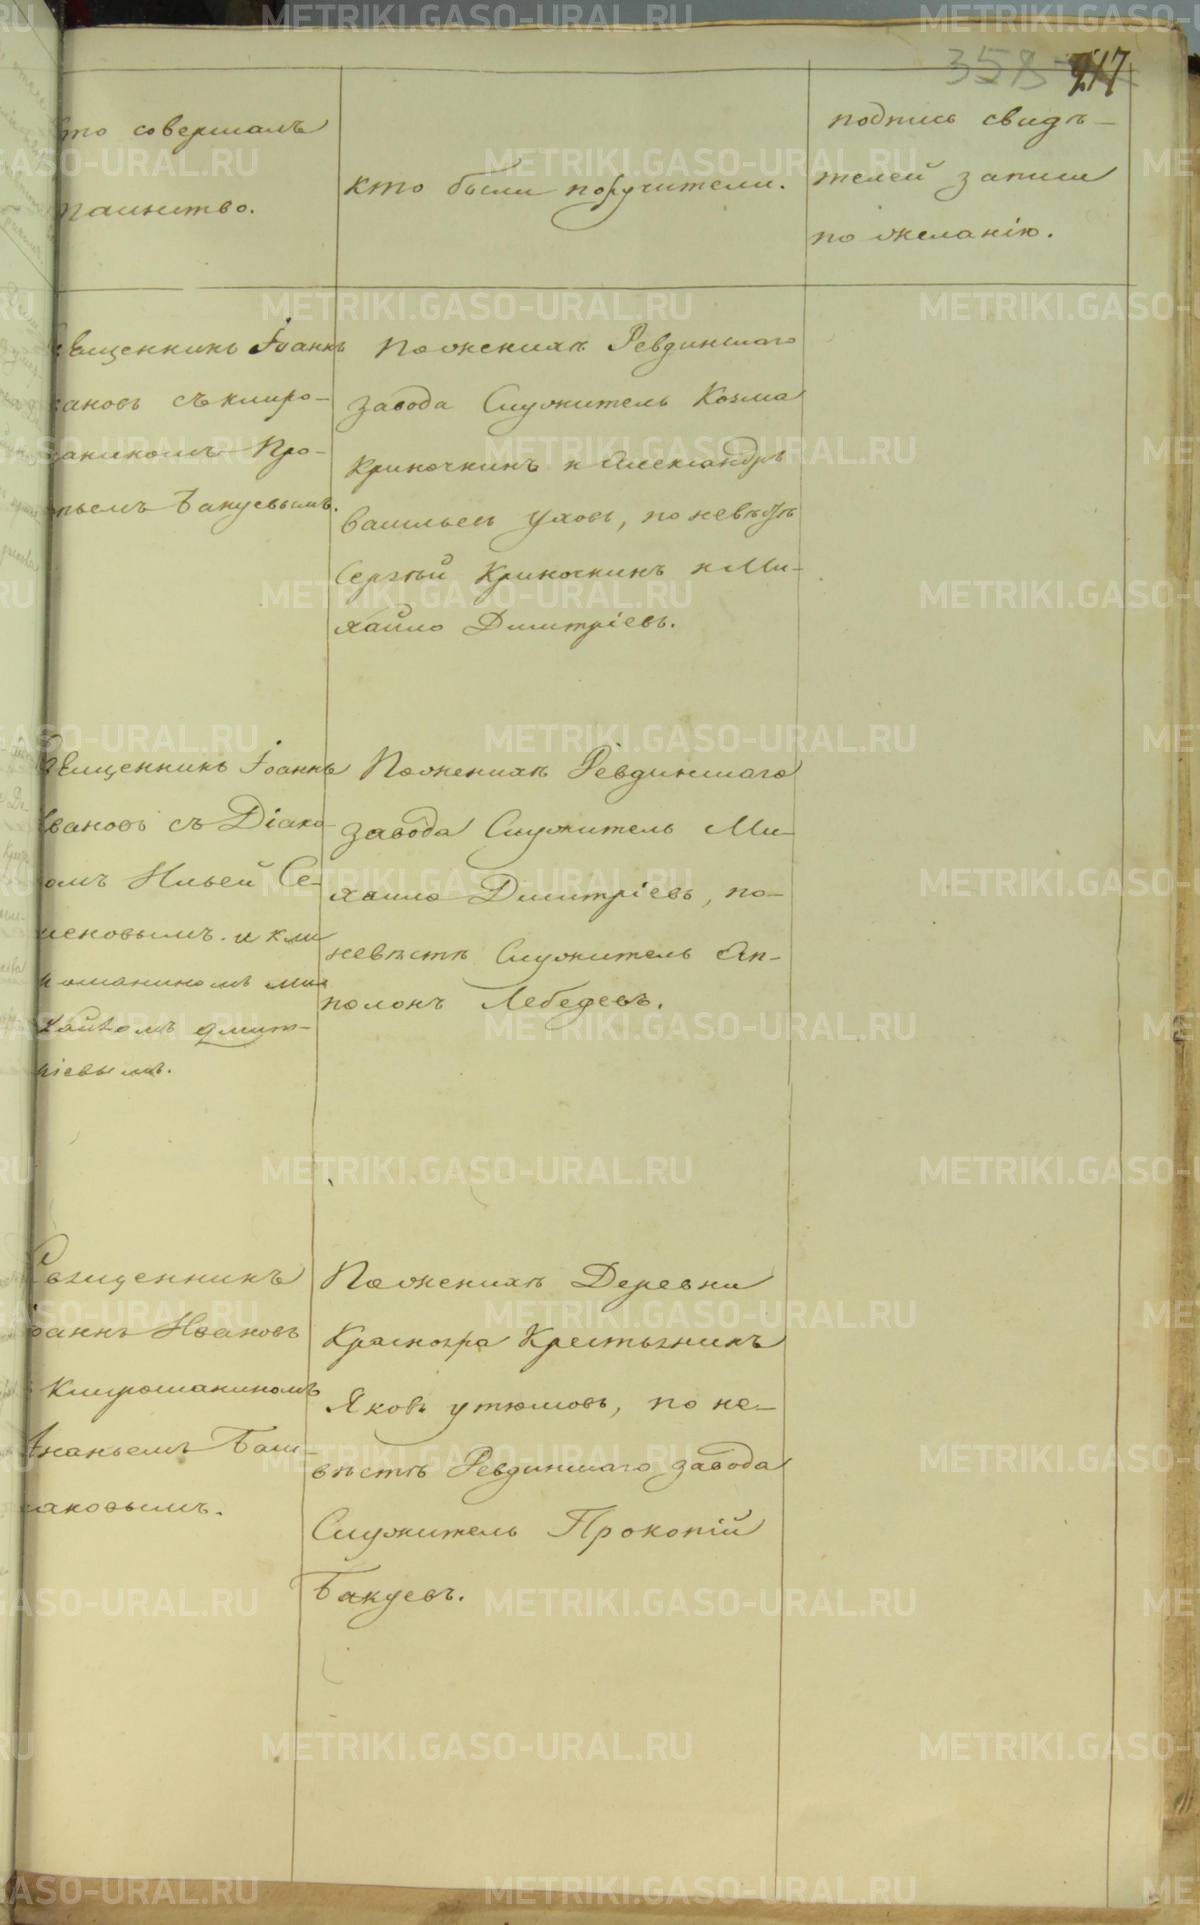 358
217
то совершалъ
таинство.
кто были поручители.
подпись свидѣ-
телей записи
по желанію.
Священникъ Іоаннъ
ановъ съ клиро-
шаниномъ Про-
пьемъ Бакуевымъ.
По женихѣ Ревдинскаго
завода Служитель Козма
Криночкинъ и Александръ
Васильевъ Уховъ, по невѣстѣ
Сергѣй Криночкинъ и Ми-
хайло Димитріевъ.
Священникъ Іоаннъ
Ивановъ съ Діако-
омъ Ильей Се-
меновымъ и кли
рошаниномъ Ми
хайломъ Дмит-
ріевымъ.
По женихѣ Ревдинскаго
завода Служитель Ми-
хаило Димитріевъ, по-
невѣстѣ Служитель Ап-
полонъ Лебедевъ.
Священникъ
Іоаннъ Ивановъ
Клирошаниномъ
Ананьемъ Баш-
маковымъ.
По женихѣ Деревни
Краснояра Крестьянинъ
Яковъ Утюмовъ, по не-
вѣстѣ Ревдинскаго завода
Служитель Прокопій
Бакуевъ.
METRIKI.GASO-URAL.RU